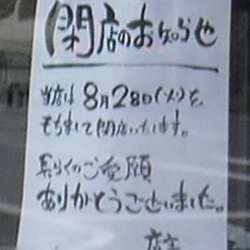 閉店のお知らせ
当店は8月28日(火)を
もちまして閉店いたします。
長らくのご愛顧
ありがとうございました。
店主